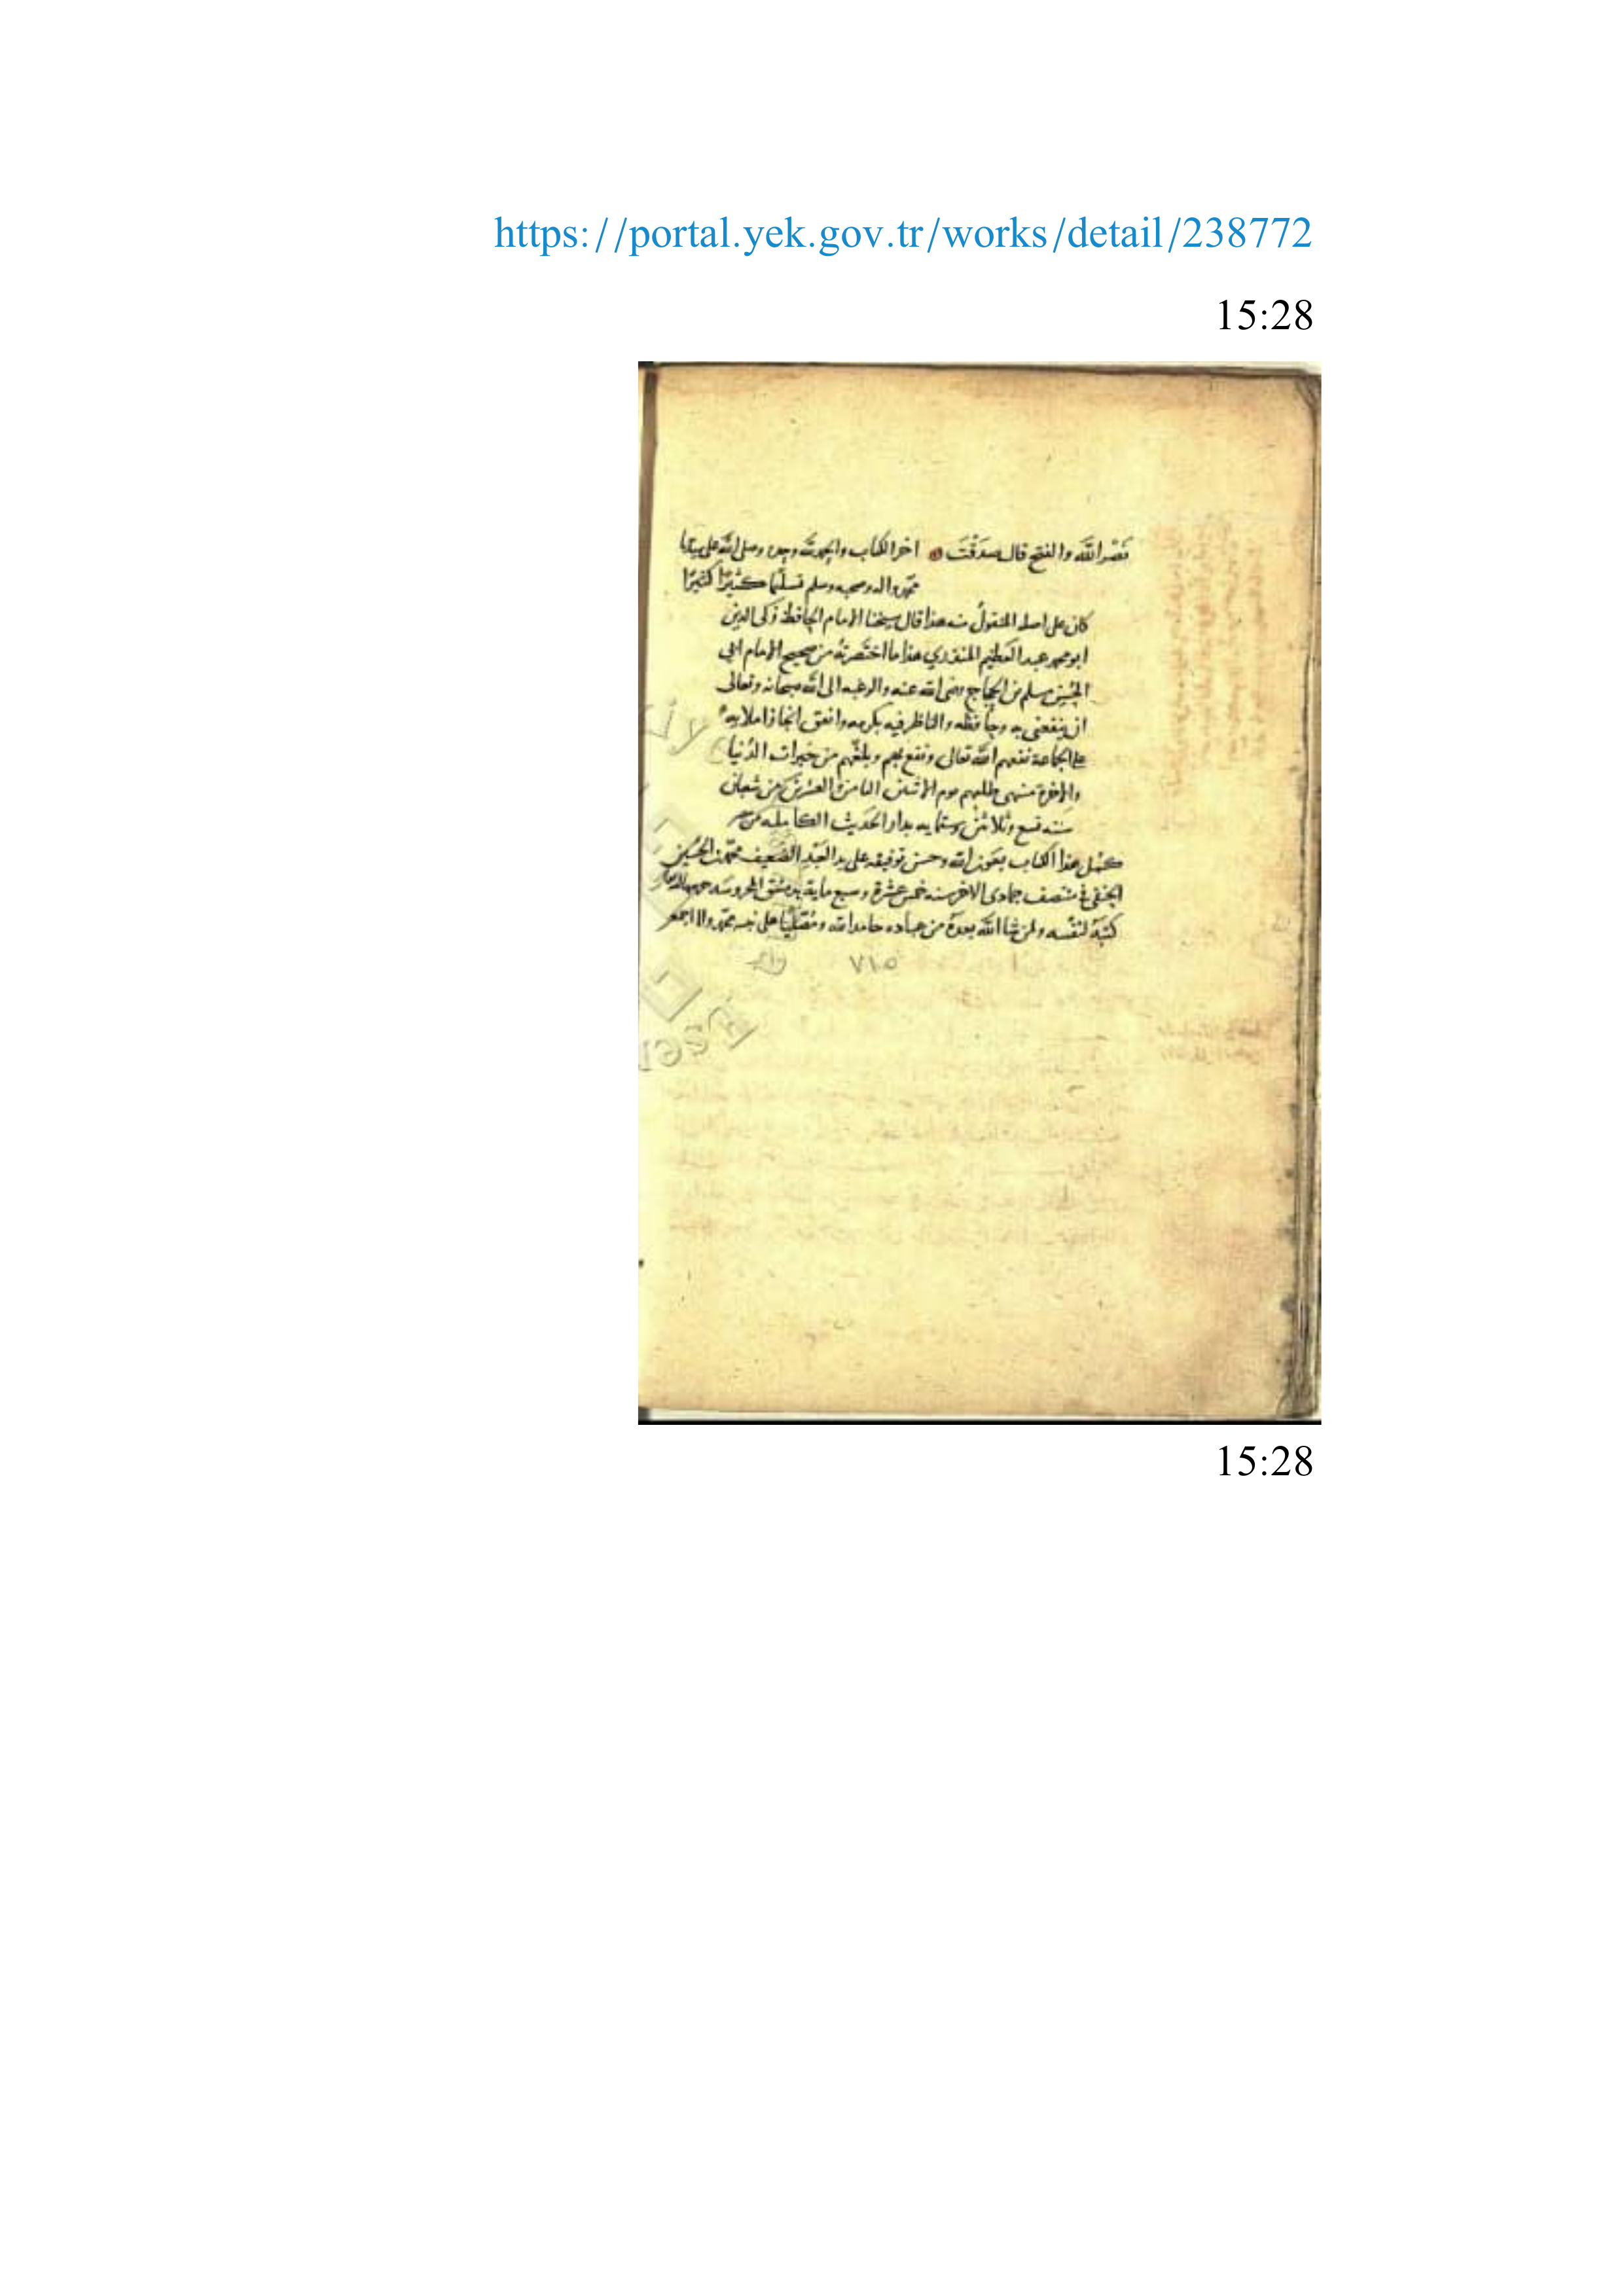 https://portal.yek.gov.tr/works/detail/238772
15:28
نَصْر الله والفتح قال صدَقْتَ اخر الكتاب والحمد لله وحده وصلى الله على سيدنا
محمد واله وصحبه وسلم تسليمًا كثيرًا كثيرًا
كان على اصله المنقول منه هذا قال شيخنا الامام الحافظ زكى الدين
ابو محمد عبد العظيم المنذري هذا ما اختصرته من صحيح الامام ابي
الحسين مسلم بن الحجاج رضى الله عنه والرغبه الى الله سبحانه وتعالى
ان ينفعنى به وحافظه والناظر فيه بكرمه واتفق انجاز املايه
على الجماعة نفعهم الله تعالى ونفع بهم وبلغهم من خيرات الدُنيا
والاخرة منتهى طلبهم يوم الاثنين الثامن والعشرين من شعبان
سنه تسع وثلاثين وستمايه بدار الحديث الكامليه من
كمل هذا الكتاب بعون الله وحسن توفيقه على يد العبد الضعيف محمد بن الحسين
الحنفى فى منتصف جمادى الاخر سنه خمس عشرة وسبع ماية بدمشق المحروسه
كتبه لنفسه ولمن شا الله بعده من عباده حامدا لله ومُصَلّيًا على نبيه محمد واله اجمعين
٧١٥
15:28